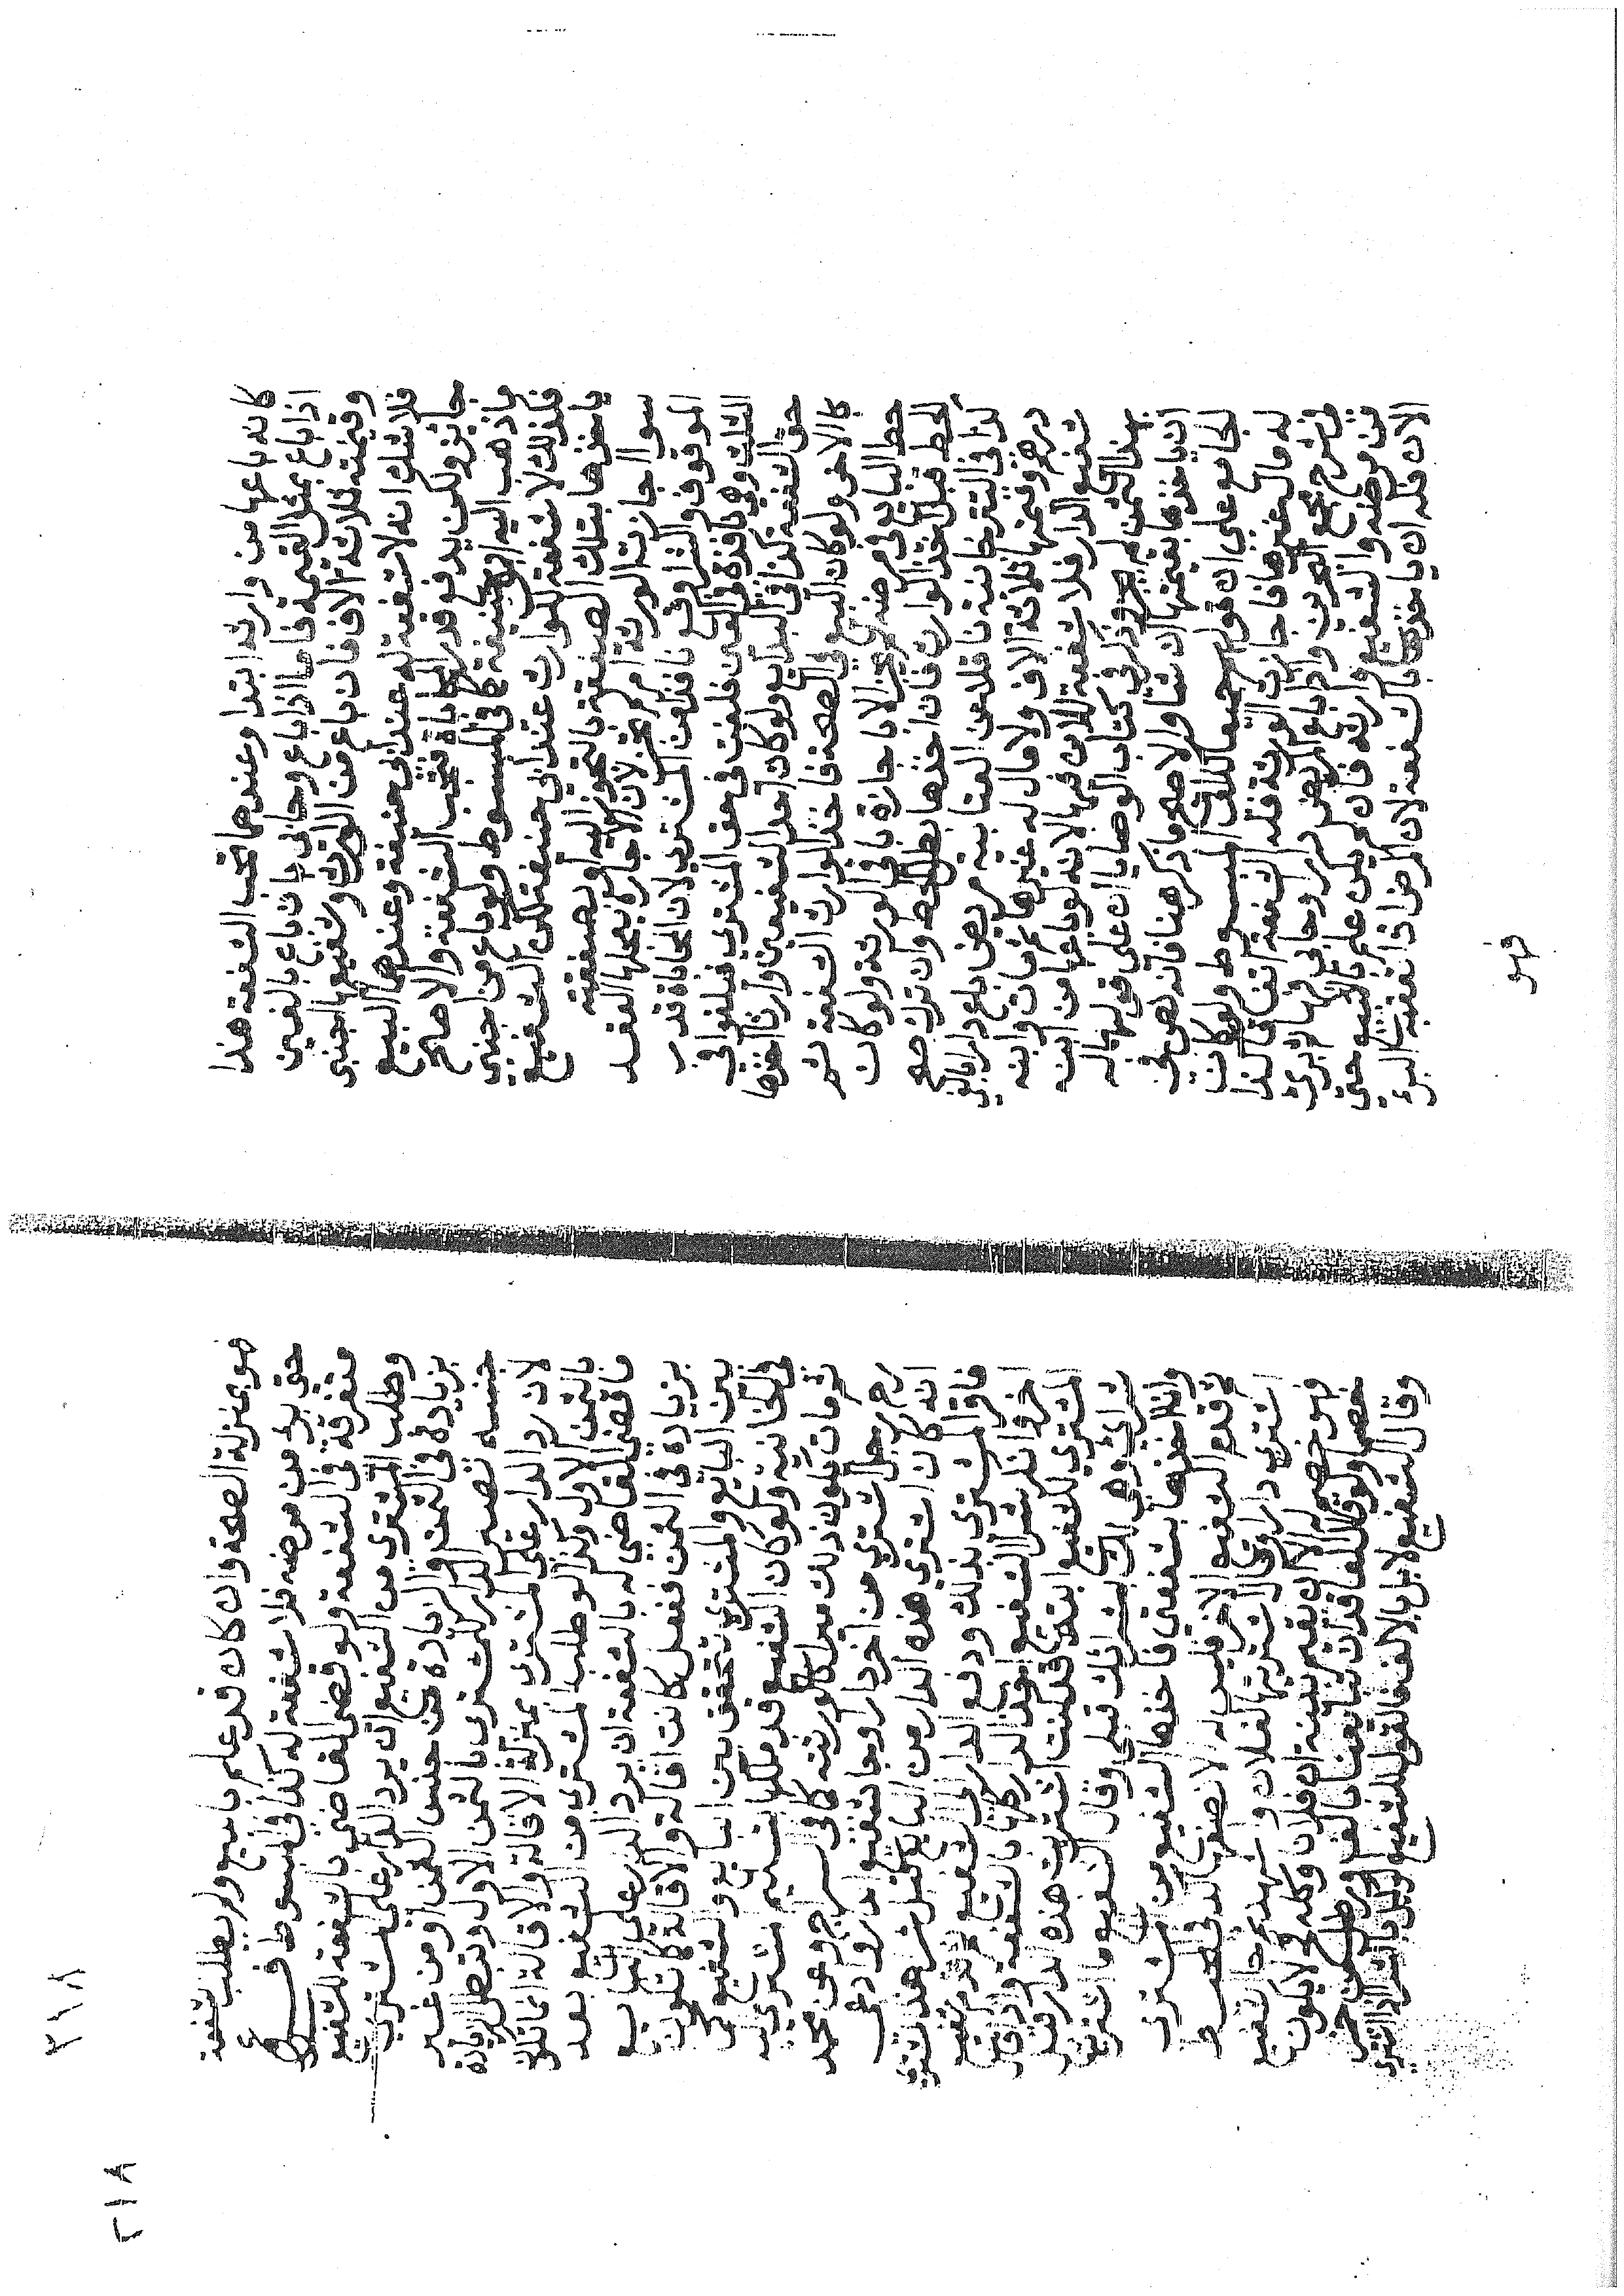 كانه باعها من وارثه ابتدا وعندهما تجب الشفعة هذا
اذا باع بمثل القيمة فاما اذا باع وحابى بان باع بالفين
وقيمته ثلاثة الاف فان باع من الوارث وشفيعها اجنبى
فلا شك انه لا شفعة له عند ابى حنيفة وعندهما البيع
جايز ولكن يدفع قدر المحاباة فتجب الشفعة والاصح
ما ذهب اليه ابو حنيفة كما فى المبسوط ولو باع من اجنبى
فكذلك لا شفعة للوارث عند ابى حنيفة لكن الشفيع
ياخذها بتلك الصفقة بالتحول اليه او بصفقة
سوا اجازت الورثة ام لم تجز لان الاجازة محلها العقد
الموقوف والشرا وقع نافذا من المشترى لان المحاباة قدر
الثلث وهى نافذة فى المرض فلغت فى حق المشترى فيلغوا فى
حق الشفعة كذا فى البدايع ولو كان احد الشفيعين وارثا اخذها
كالاخر ولو كان البيع فى الصحة فاخذ الوارث الشفعة ثم
حط البايع فى مرضه لم يجز الا باجازة باقى الورثة ولو كان
الحط قبل اخذ الوارث فان اخذها بطل الحط وان ترك صح
كذا فى التترخانية ناقلا عن العتابية مريض باع دارا بالفى
درهم وقيمتها ثلاثة الاف ولا مال له غيرها ثم مات وابنه
شفيع الدار فلا شفعة للابن فيها لانه لو باعها من ابنه
بهذا الثمن لم يجز وذكر فى كتاب الوصايا ان على قولهما له
ان ياخذها بقيمتها ان شا والاصح ما ذكر هنا فانه نص فى
الجامع على ان قولهم جميعا كذا فى المبسوط ولو كان
له مال غيرها فاجازت الورثة فله الشفعة اتفاقا كذا
فى شرح مجمع البحرين واذا باع المريض دارا وحابى فيها ثم برئ
من مرضه والشفيع وارثه فان لم يكن علم بالبيع حتى
الان فله ان ياخذها بالشفعة لان المرض اذا تعقبه البرء
فهو
فهو بمنزلة الصحة وان كان قد علم بالبيع ولم يطلب شفعته
حتى برى من مرضه فلا شفعة له كذا فى المبسوط فـــــى
متفرقة فى الشفعة ولو قضى القاضى بالشفعة للشفيع
وطلب المشترى من الشفيع ان يرد الدار على المشترى
بزيادة فى الثمن والزيادة من جنس الثمن او من غير
جنسه تصير الدار للمشترى بالثمن الاول وتبطل الزيادة
لان رد الدار على المشترى بمنزلة الاقالة والاقالة انما تكون
بالثمن الاول وكذا لو طلب المشترى من الشفيع بعد
ما قضى القاضى له بالشفعة ان يرد الدار على البايع
بزيادة فى الثمن ففعل كانت اقالة والاقالة كما تكون
بين البايع والمشترى تتحقق بين البايع والشفيع كما
فى الخانية ولو كان الشفيع قد ملكها بتسليم المشترى
ثم مات يكون ذلك ميراثا لورثته كما فى السراجية وعن محمد
رحم رجل اشترى من اخر دارا وجا شفيع الدار وادعى
انه كان اشترى هذه الدار من البايع قبل شرا هذا المشترى
فاقر المشترى بذلك ودفع الدار الى الشفيع ثم قدم شفيع
اخر وانكر شرا الشفيع اخذ الدار كلها بالشفعة ولو قال
المشترى للشفيع ابتدا قد كنت اشتريت هذه الدار قبل
شرائى وهى لك بشرائك قبلى وقال الشفيع ما اشتريت
وانا اخذها بشفعتى فاخذها الشفيع من المشترى
ثم قدم الشفيع الاخر فليس له الا نصفها كذا فى المحيط
اشترى دارا وقال اشتريتها لفلان واشهد ثم جا الشفيع
فهو خصم له الا ان تقيم بينة ان فلانا وكله فح لا يكون
خصما ولو قال المتعاقدان تبايعنا بالف ورطل من خمر
وقال الشفيع لا بل بالالف فالقول للشفيع والوكيل بالشرا اذا اشترى
٣١٨
٢١٨